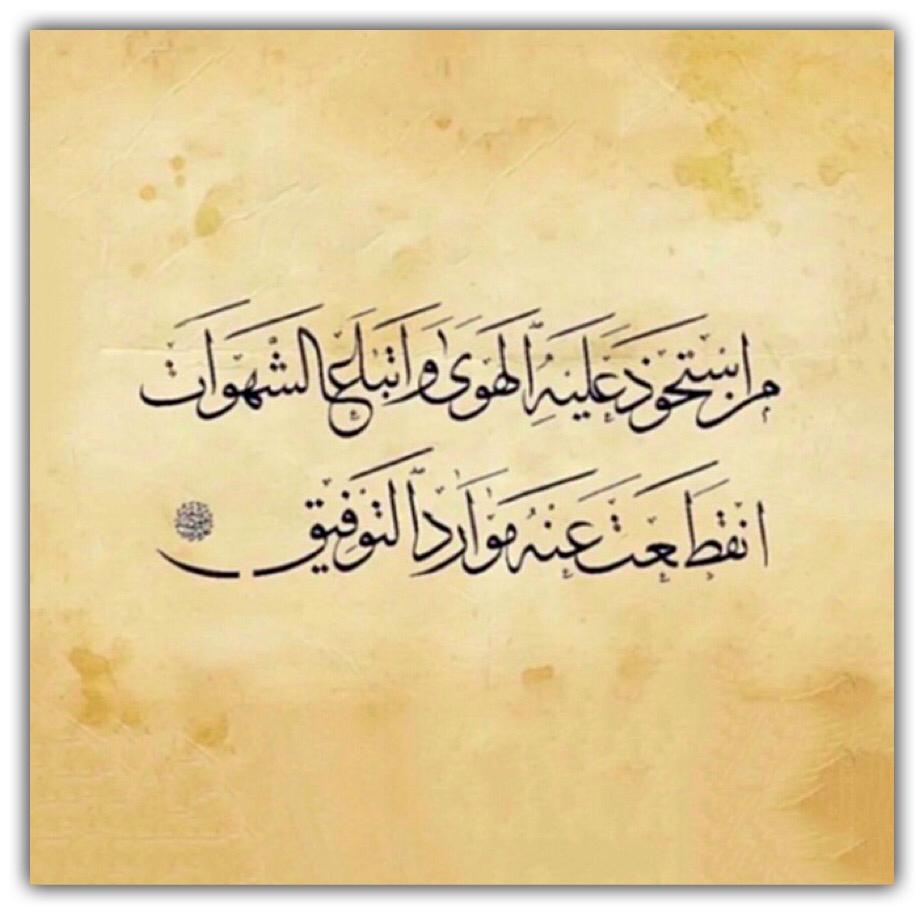 من استحوذ عَلَيْهِ الهَوَىٰ وَاتّبَاع الشّهَوَات
انْقَطَعَتْ عَنْهُ مَوَارد التّوفِيق